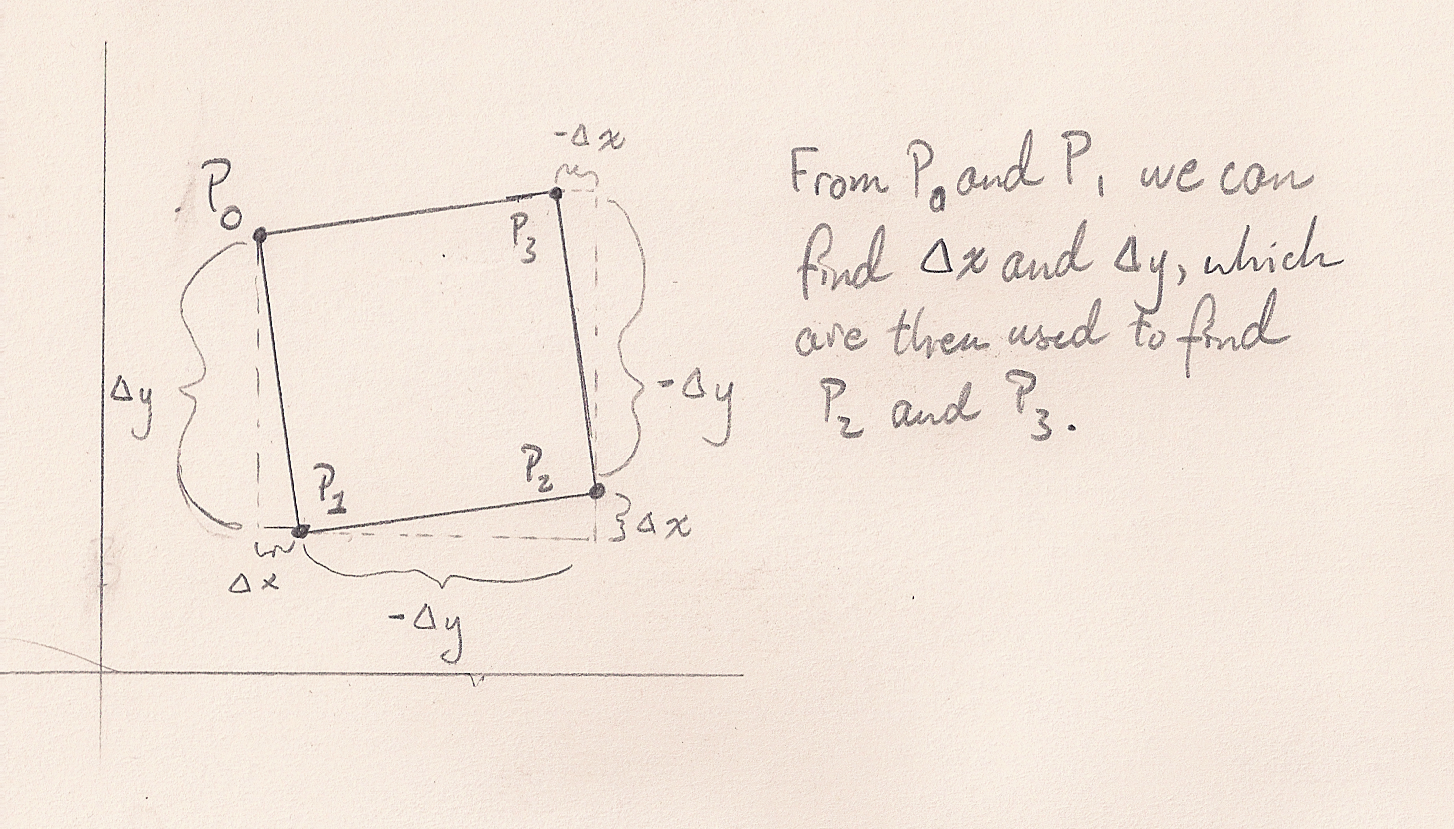 -Δx
P₀
P₃
Δy
-Δy
P₁
P₂
Δx
Δx
-Δy
From P₀ and P₁ we can
find Δx and Δy, which
are then used to find
P₂ and P₃.